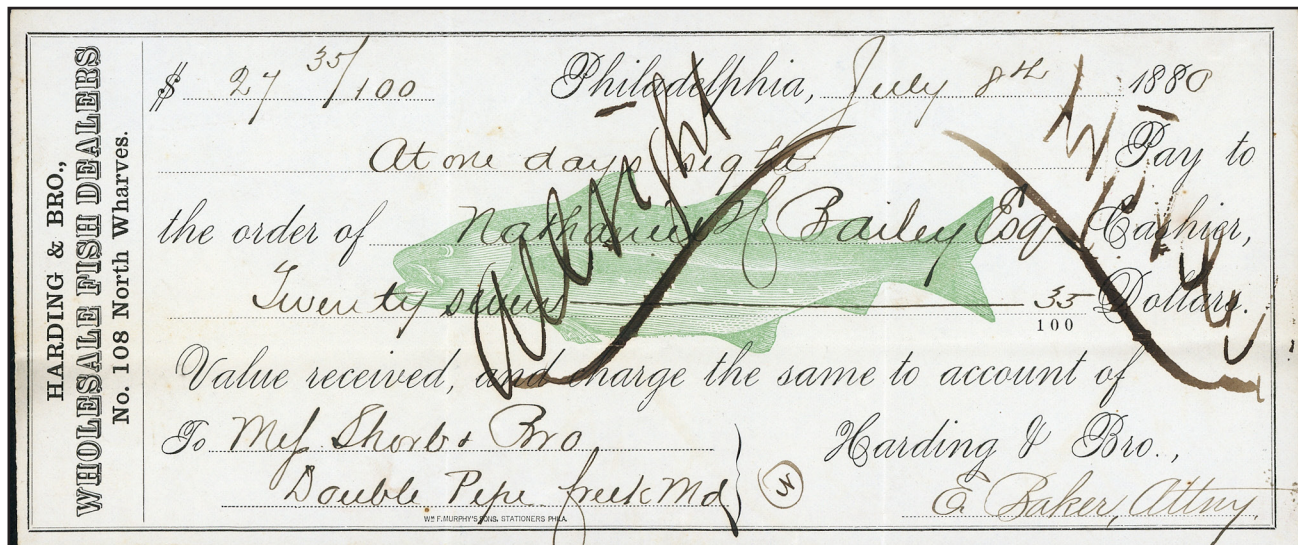 HARDING & BRO.,
WHOLESALE FISH DEALERS
No. 108 North Wharves.
$ 27 35/100 Philadelphia, July 8th 1880
At one days sight Pay to
the order of Nathaniel Bailey Esq Cashier,
Twenty seven 35/100 Dollars.
Value received, and charge the same to account of
To Mess Shorb & Bro Harding & Bro.,
Double Pipe Creek Md E Baker, Attny.
WM F. MURPHY'S SONS. STATIONERS PHILA.